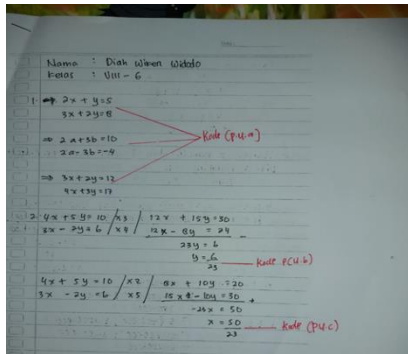 Nama : Diah Wiwen Widodo
Kelas : VIII - 6
1. ⇒ 2x + y = 5
3x + 2y = 8
⇒ 2a + 3b = 10
2a - 3b = -4
Kode (P.4.a)
⇒ 3x + 2y = 12
4x + 3y = 17
2. 4x + 5y = 10 / x3 / 12x + 15y = 30
3x - 2y = 6 / x4 / 12x - 8y = 24
23y = 6
y = 6/23 Kode P(4.b)
4x + 5y = 10 / x2 / 8x + 10y = 20
3x - 2y = 6 / x5 / 15x - 10y = 30 +
-23x = 50
x = 50/23 Kode (P4.c)